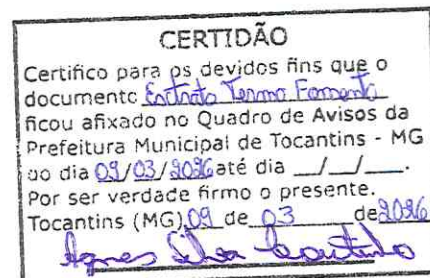 CERTIDÃO
Certifico para os devidos fins que o
documento Extrato Termo Fomento
ficou afixado no Quadro de Avisos da
Prefeitura Municipal de Tocantins - MG
ao dia 09/03/2026 até dia __/__/__.
Por ser verdade firmo o presente.
Tocantins (MG) 09 de 03 de 2026
Agnes Silva Coutinho